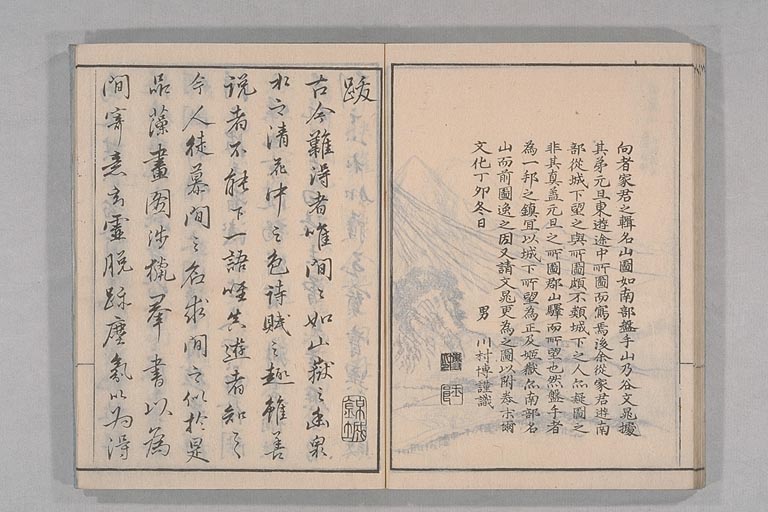 向者家君之輯名山圖如南部盤手山乃谷文晁據
其弟元旦東遊途中所圖而寫焉後余從家君遊南
部從城下望之與所圖頗不類城下之人亦疑圖之
非其真蓋元旦之所圖郡山驛而所望也然盤手者
為一邦之鎮宜以城下所望為正及姬嶽亦南部名
山而前圖逸之因又請文晁更為之圖以附卷末爾
文化丁卯冬日
男 川村博謹識
跋
古今難得者唯閒之如山嶽之幽泉
水之清花中之色詩賦之趣雖善
說者不能下一語唯其遊者知之
今人徒慕閒之名求閒之似於是
品藻畫圖涉獵羣書以為
閒寄意玄靈脫踪塵氣以為得